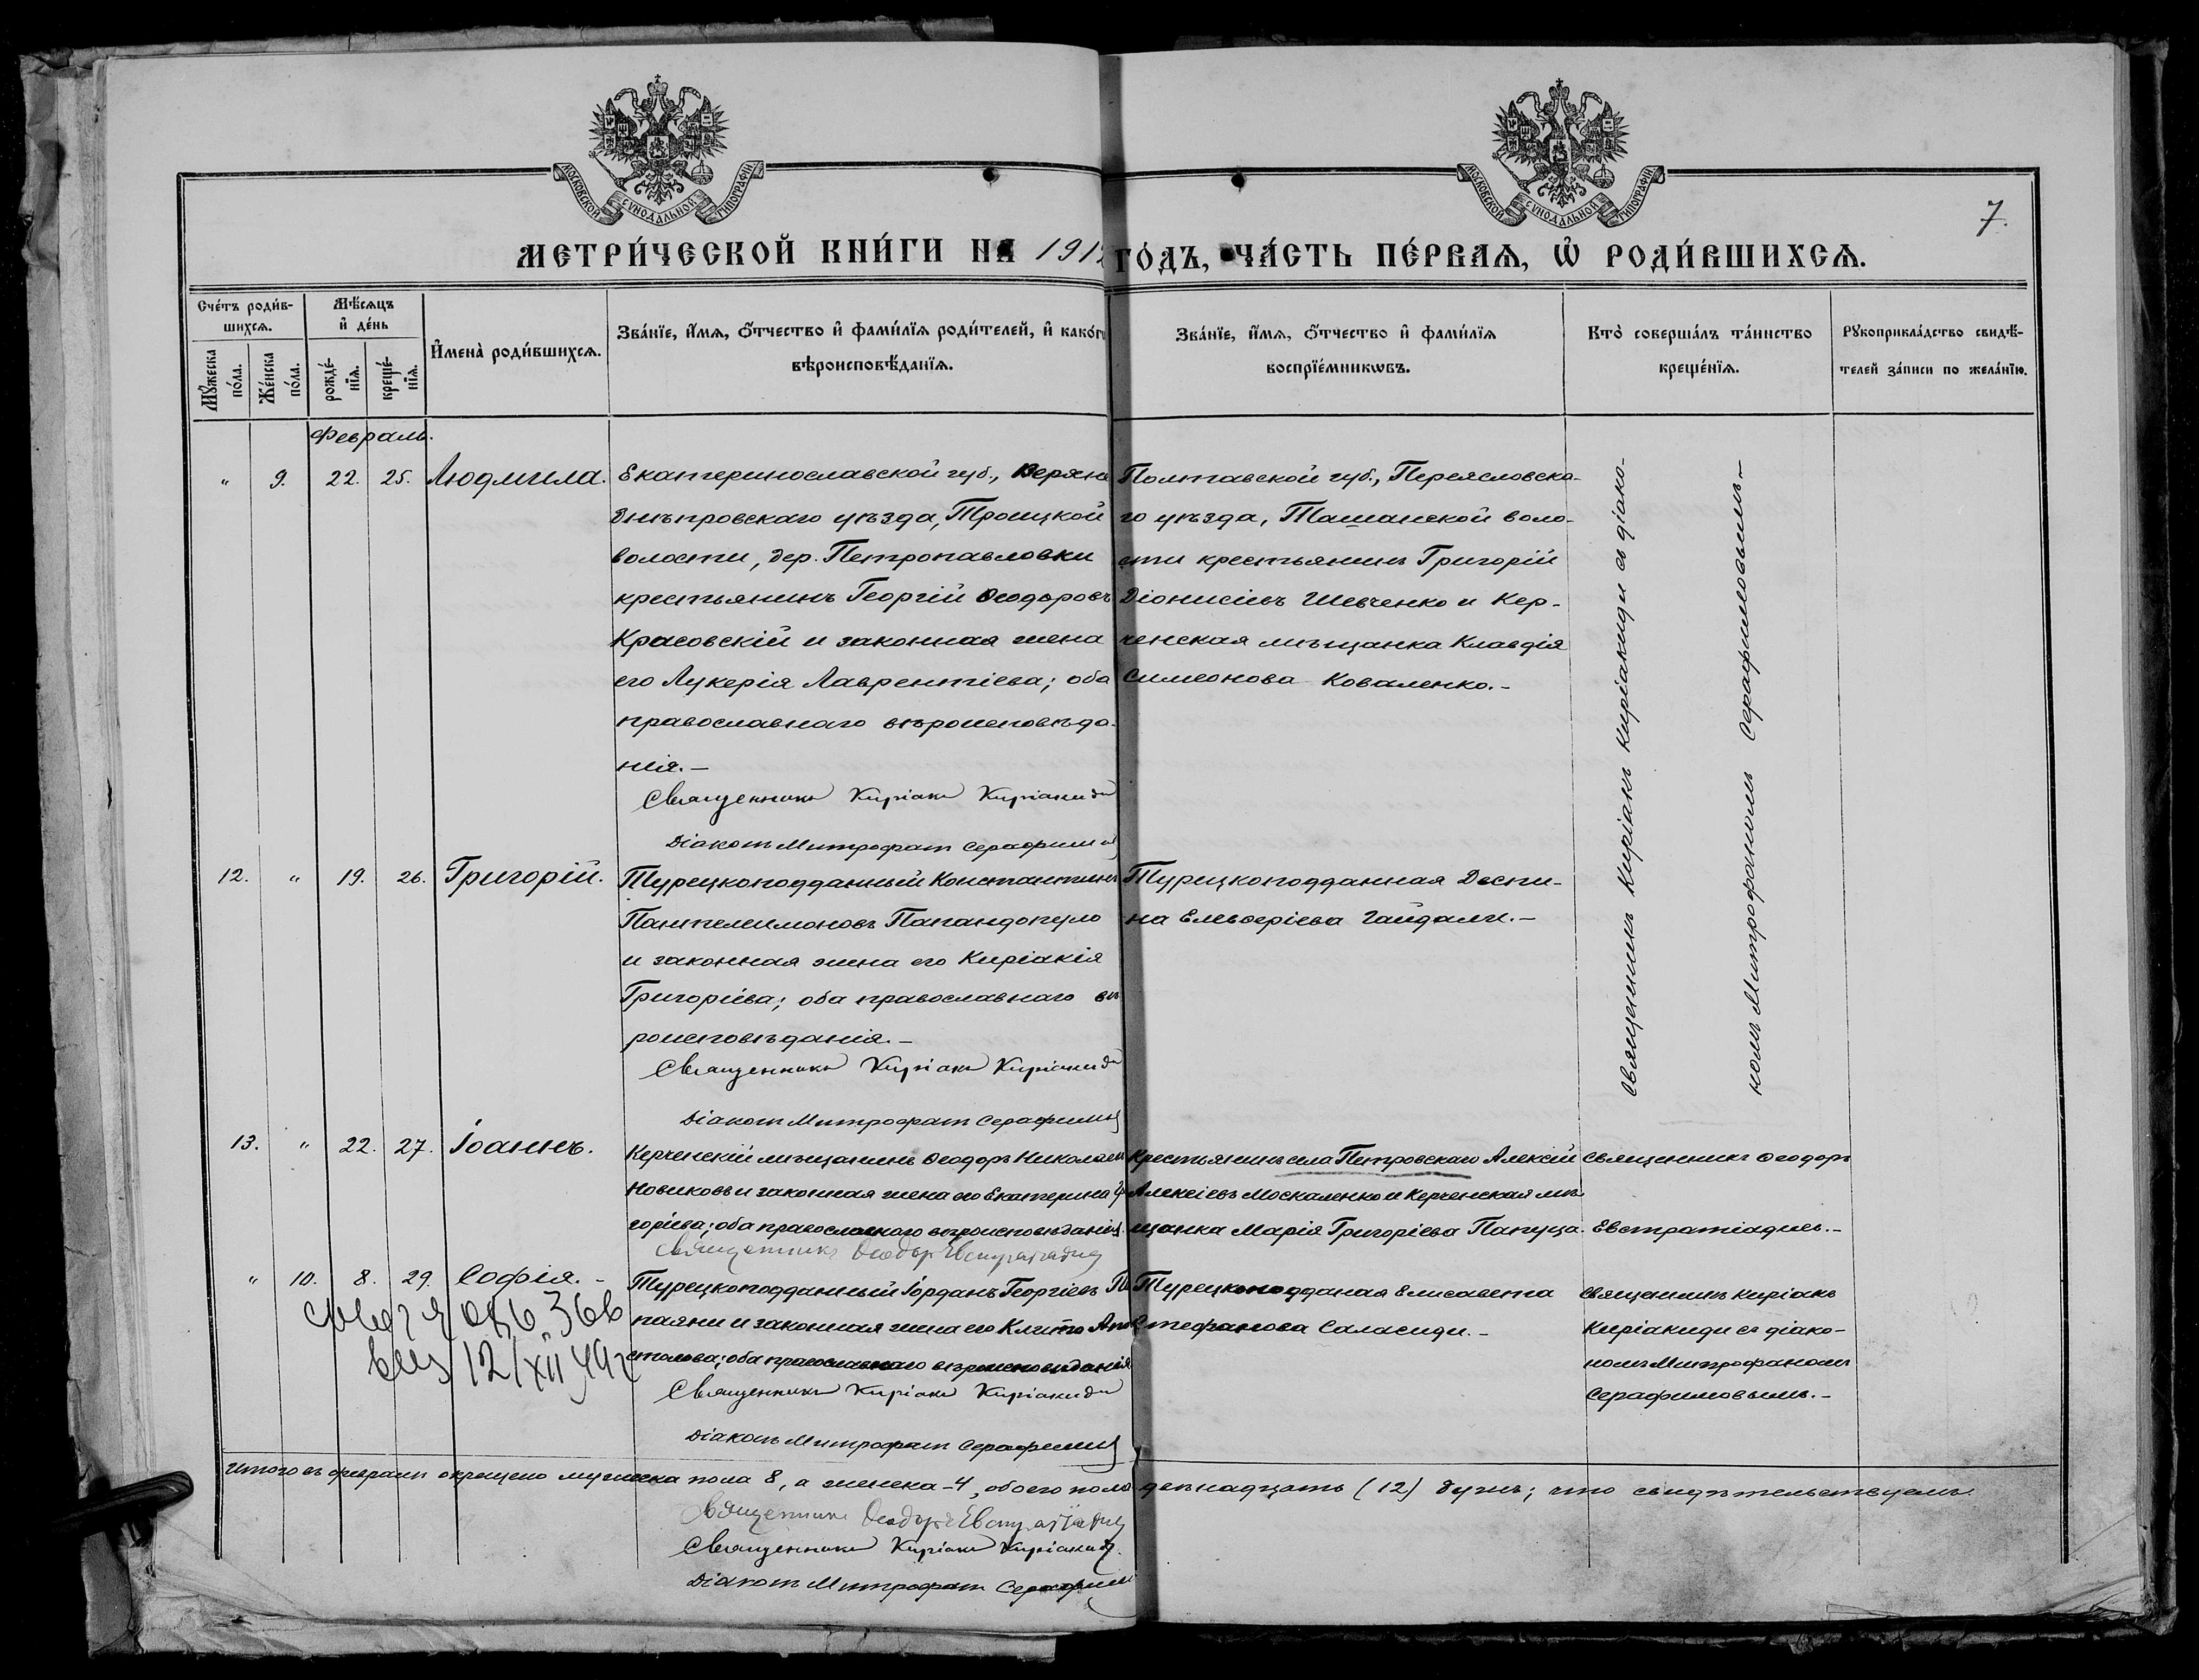 МОСКОВСКОЙ СѴНОДАЛЬНОЙ ТИПОГРАФІИ
МОСКОВСКОЙ СѴНОДАЛЬНОЙ ТИПОГРАФІИ
7.
МЕТРИ́ЧЕСКОЙ КНИ́ГИ НА 191 ГО́ДЪ, ЧА́СТЬ ПЕ́РВАѦ, Ѡ҆ РОДИ́ВШИХСѦ.
Сче́тъ роди́в-
шихсѧ.
Мꙋ́жеска по́ла.
Же́нска по́ла.
Мѣ́сѧцъ
и҆ де́нь
рожде́-
нїѧ.
креще́-
нїѧ.
И҆мена̀ роди́вшихсѧ.
Зва́нїе, и҆́мѧ, ѻ҆́тчество и҆ фами́лїѧ роди́телей, и҆ како́гѡ
вѣроисповѣ́данїѧ.
Зва́нїе, и҆́мѧ, ѻ҆́тчество и҆ фами́лїѧ
воспрїе́мникѡвъ.
Кто̀ соверша́лъ та́инство
креще́нїѧ.
Рꙋкоприкла́дство свидѣ́-
телей за́писи по жела́нїю.
Февраль.
" 9. 22. 25. Людмила.
Екатеринославской губ., Верхне
днѣпровскаго уѣзда, Троицкой
волости, дер. Петропавловки
крестьянинъ Георгій Ѳеодоровъ
Красовскій и законная жена
его Лукерія Лаврентіева; оба
православнаго вѣроисповѣда-
нія.-
Священникъ Киріакъ Киріакиди
Діаконъ Митрофанъ Серафимов
Полтавской губ., Переясловска-
го уѣзда, Ташанской воло-
сти крестьянинъ Григорій
Діонисіевъ Шевченко и Кер-
ченская мѣщанка Клавдія
Симеонова Коваленко.-
Священникъ Киріакъ Киріакиди съ діако-
номъ Митрофаномъ Серафимовымъ.-
12. " 19. 26. Григорій.
Турецкоподданный Константинъ
Пантелеимоновъ Папандопуло
и законная жена его Киріакія
Григоріева; оба православнаго вѣ
роисповѣданія.-
Священникъ Киріакъ Киріакиди
Діаконъ Митрофанъ Серафимов
Турецкоподданная Деспи-
на Елевѳеріева Гайдалы.-
13. " 22. 27. Іоаннъ.
Керченскій мѣщанинъ Ѳеодоръ Николаевъ
Новиковъ и законная жена его Екатерина Гри
горіева; оба православнаго вѣроисповѣданія.
Священникъ Ѳеодоръ Евстратіадис
Крестьянинъ села Петровскаго Алексій
Алексіевъ Москаленко и Керченская мѣ-
щанка Марія Григоріева Папуща.
Священникъ Ѳеодоръ
Евстратіадисъ.-
" 10. 8. 29. Софія.-
12/XII 49г
Турецкоподданный Іорданъ Георгіевъ
паяни и законная жена его Апо
столова; оба православнаго вѣроисповѣданія
Священникъ Киріакъ Киріакиди
Діаконъ Митрофанъ Серафимов
Турецкоподданая Елисавета
Стефанова Саласиди.-
Священникъ Киріакъ
Киріакиди съ діако-
номъ Митрофаномъ
Серафимовымъ.-
Итого въ февралѣ окрещено мужеска пола 8, а женска-4, обоего пола двѣнадцать (12) душъ; что свидѣтельствуемъ.
Священникъ Ѳеодоръ Евстратіадис
Священникъ Киріакъ Киріакиди.
Діаконъ Митрофанъ Серафимов